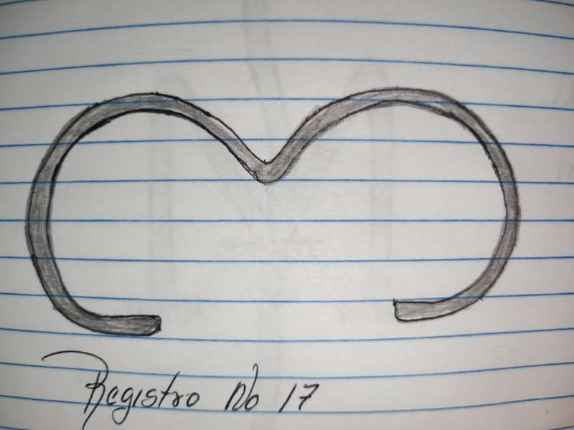 Registro No 17